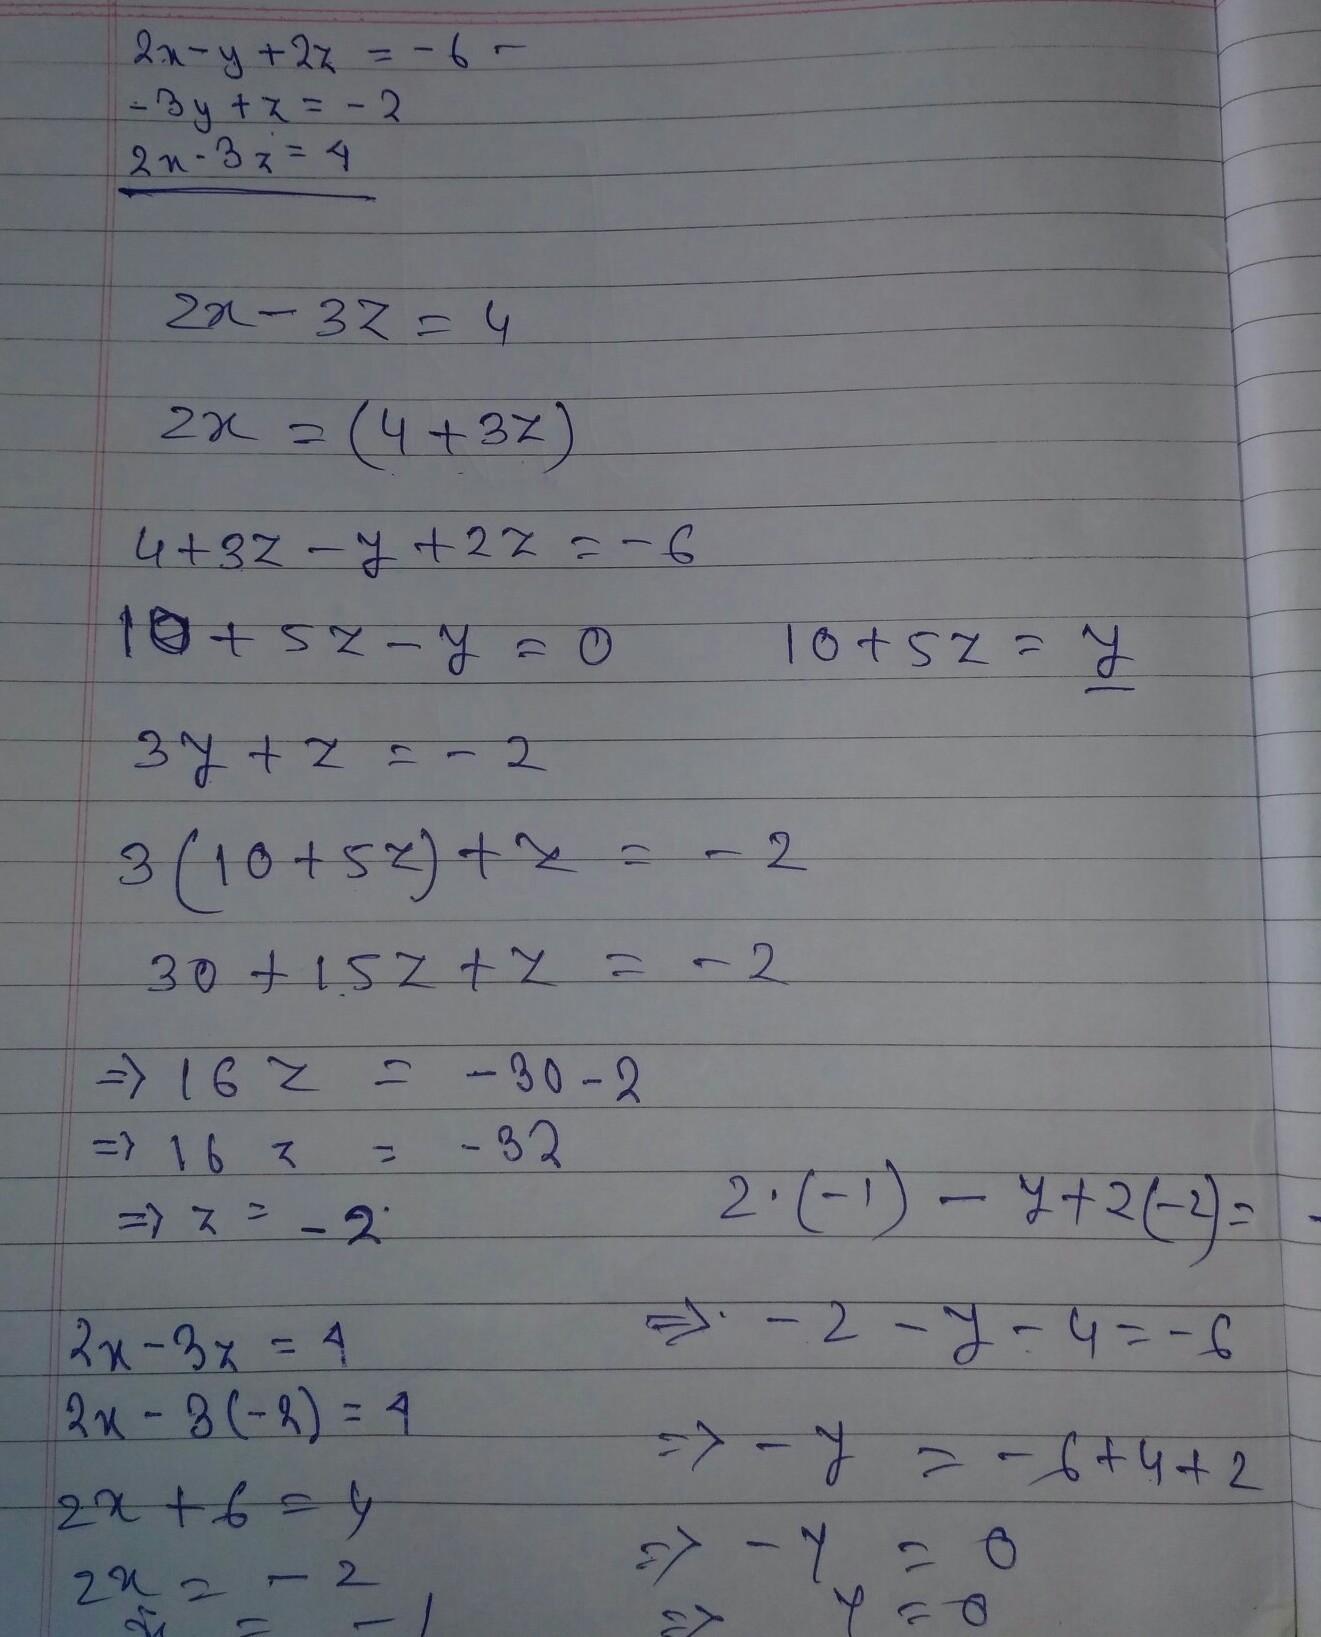 2x-y+2z = -6 -
-3y+z = -2
2x-3z = 4
2x-3z = 4
2x = (4+3z)
4+3z-y+2z = -6
10+5z-y = 0
10+5z = y
3y+z = -2
3(10+5z)+z = -2
30+15z+z = -2
⇒ 16z = -30-2
⇒ 16z = -32
⇒ z = -2
2x-3z = 4
2x-3(-2) = 4
2x+6 = 4
2x = -2
x = -1
2·(-1) - y+2(-2) = -
⇒ -2-y-4 = -6
⇒ -y = -6+4+2
⇒ -y = 0
⇒ y = 0